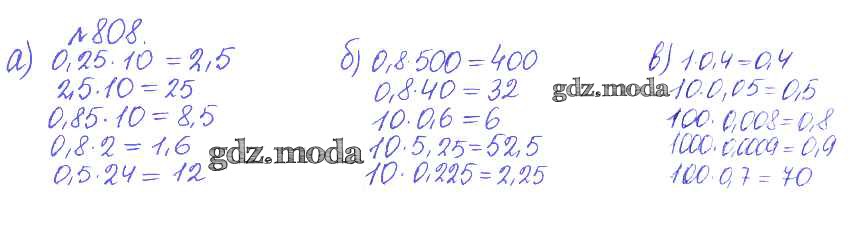 №808.
а) 0,25·10 = 2,5
2,5·10 = 25
0,85·10 = 8,5
0,8·2 = 1,6
0,5·24 = 12
б) 0,8·500 = 400
0,8·40 = 32
10·0,6 = 6
10·5,25 = 52,5
10·0,225 = 2,25
в) 1·0,4 = 0,4
10·0,05 = 0,5
100·0,008 = 0,8
1000·0,0009 = 0,9
100·0,7 = 70
gdz.moda
gdz.moda